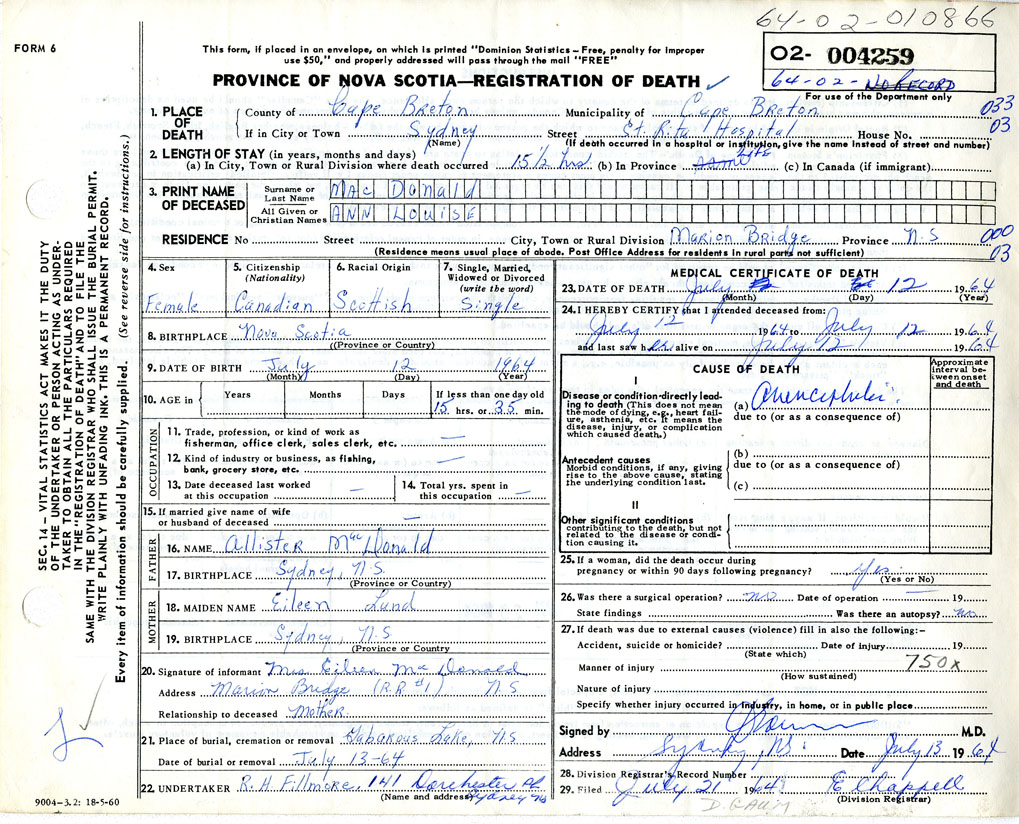 64-02-010866
FORM 6
This form, if placed in an envelope, on which is printed "Dominion Statistics – Free, penalty for improper
use $50," and properly addressed will pass through the mail "FREE"
O2- 004259
64-02- NO RECORD
For use of the Department only
PROVINCE OF NOVA SCOTIA—REGISTRATION OF DEATH
1. PLACE OF DEATH
County of Cape Breton Municipality of Cape Breton 033
If in City or Town Sydney Street St. Rita Hospital House No. 03
(Name) (If death occurred in a hospital or institution, give the name instead of street and number)
2. LENGTH OF STAY (in years, months and days)
(a) In City, Town or Rural Division where death occurred 15½ hrs (b) In Province life (c) In Canada (if immigrant)
3. PRINT NAME OF DECEASED
Surname or Last Name Mac Donald
All Given or Christian Names ANN LOUISE
RESIDENCE No Street City, Town or Rural Division Marion Bridge Province N.S 000
(Residence means usual place of abode. Post Office Address for residents in rural parts not sufficient) 03
4. Sex Female
5. Citizenship (Nationality) Canadian
6. Racial Origin Scottish
7. Single, Married, Widowed or Divorced (write the word) Single
8. BIRTHPLACE Nova Scotia
(Province or Country)
9. DATE OF BIRTH July 12 1964
(Month) (Day) (Year)
10. AGE in Years Months Days If less than one day old
15 hrs. or 35 min.
OCCUPATION
11. Trade, profession, or kind of work as
fisherman, office clerk, sales clerk, etc. —
12. Kind of industry or business, as fishing,
bank, grocery store, etc. —
13. Date deceased last worked
at this occupation —
14. Total yrs. spent in
this occupation —
15. If married give name of wife
or husband of deceased —
FATHER
16. NAME Allister MacDonald
17. BIRTHPLACE Sydney, N.S.
(Province or Country)
MOTHER
18. MAIDEN NAME Eileen Lund
19. BIRTHPLACE Sydney, N.S
(Province or Country
20. Signature of informant Mrs Eileen MacDonald
Address Marion Bridge (R.R #1) N.S
Relationship to deceased Mother
21. Place of burial, cremation or removal Gabarous Lake, N.S.
Date of burial or removal July 13-64
22. UNDERTAKER R.H. Fillmore, 141 Dorchester St
(Name and address) Sydney NS
9004-3.2: 18-5-60
MEDICAL CERTIFICATE OF DEATH
23. DATE OF DEATH July 12 1964
(Month) (Day) (Year)
24. I HEREBY CERTIFY that I attended deceased from:
July 12 1964 to July 12 1964
and last saw her alive on July 12 1964
CAUSE OF DEATH
Approximate interval between onset and death
I
Disease or condition directly leading to death (This does not mean the mode of dying, e.g., heart failure, asthenia, etc. It means the disease, injury, or complication which caused death.)
(a) Anencephalic
due to (or as a consequence of)
Antecedent causes
Morbid conditions, if any, giving rise to the above cause, stating the underlying condition last.
(b)
due to (or as a consequence of)
(c)
II
Other significant conditions
contributing to the death, but not related to the disease or condition causing it.
25. If a woman, did the death occur during
pregnancy or within 90 days following pregnancy? yes
(Yes or No)
26. Was there a surgical operation? no Date of operation — 19
State findings Was there an autopsy? no
27. If death was due to external causes (violence) fill in also the following:–
Accident, suicide or homicide? Date of injury 19
(State which)
Manner of injury 750x
(How sustained)
Nature of injury
Specify whether injury occurred in industry, in home, or in public place
Signed by M.D.
Address Sydney, NS. Date July 13 1964
28. Division Registrar's Record Number
29. Filed July 21 1964 E Chappell
(Division Registrar)
SEC. 14 – VITAL STATISTICS ACT MAKES IT THE DUTY
OF THE UNDERTAKER OR PERSON ACTING AS UNDER-
TAKER TO OBTAIN ALL THE PARTICULARS REQUIRED
IN THE "REGISTRATION OF DEATH" AND TO FILE THE
SAME WITH THE DIVISION REGISTRAR WHO SHALL ISSUE THE BURIAL PERMIT.
WRITE PLAINLY WITH UNFADING INK. THIS IS A PERMANENT RECORD.
Every item of information should be carefully supplied. (See reverse side for instructions.)